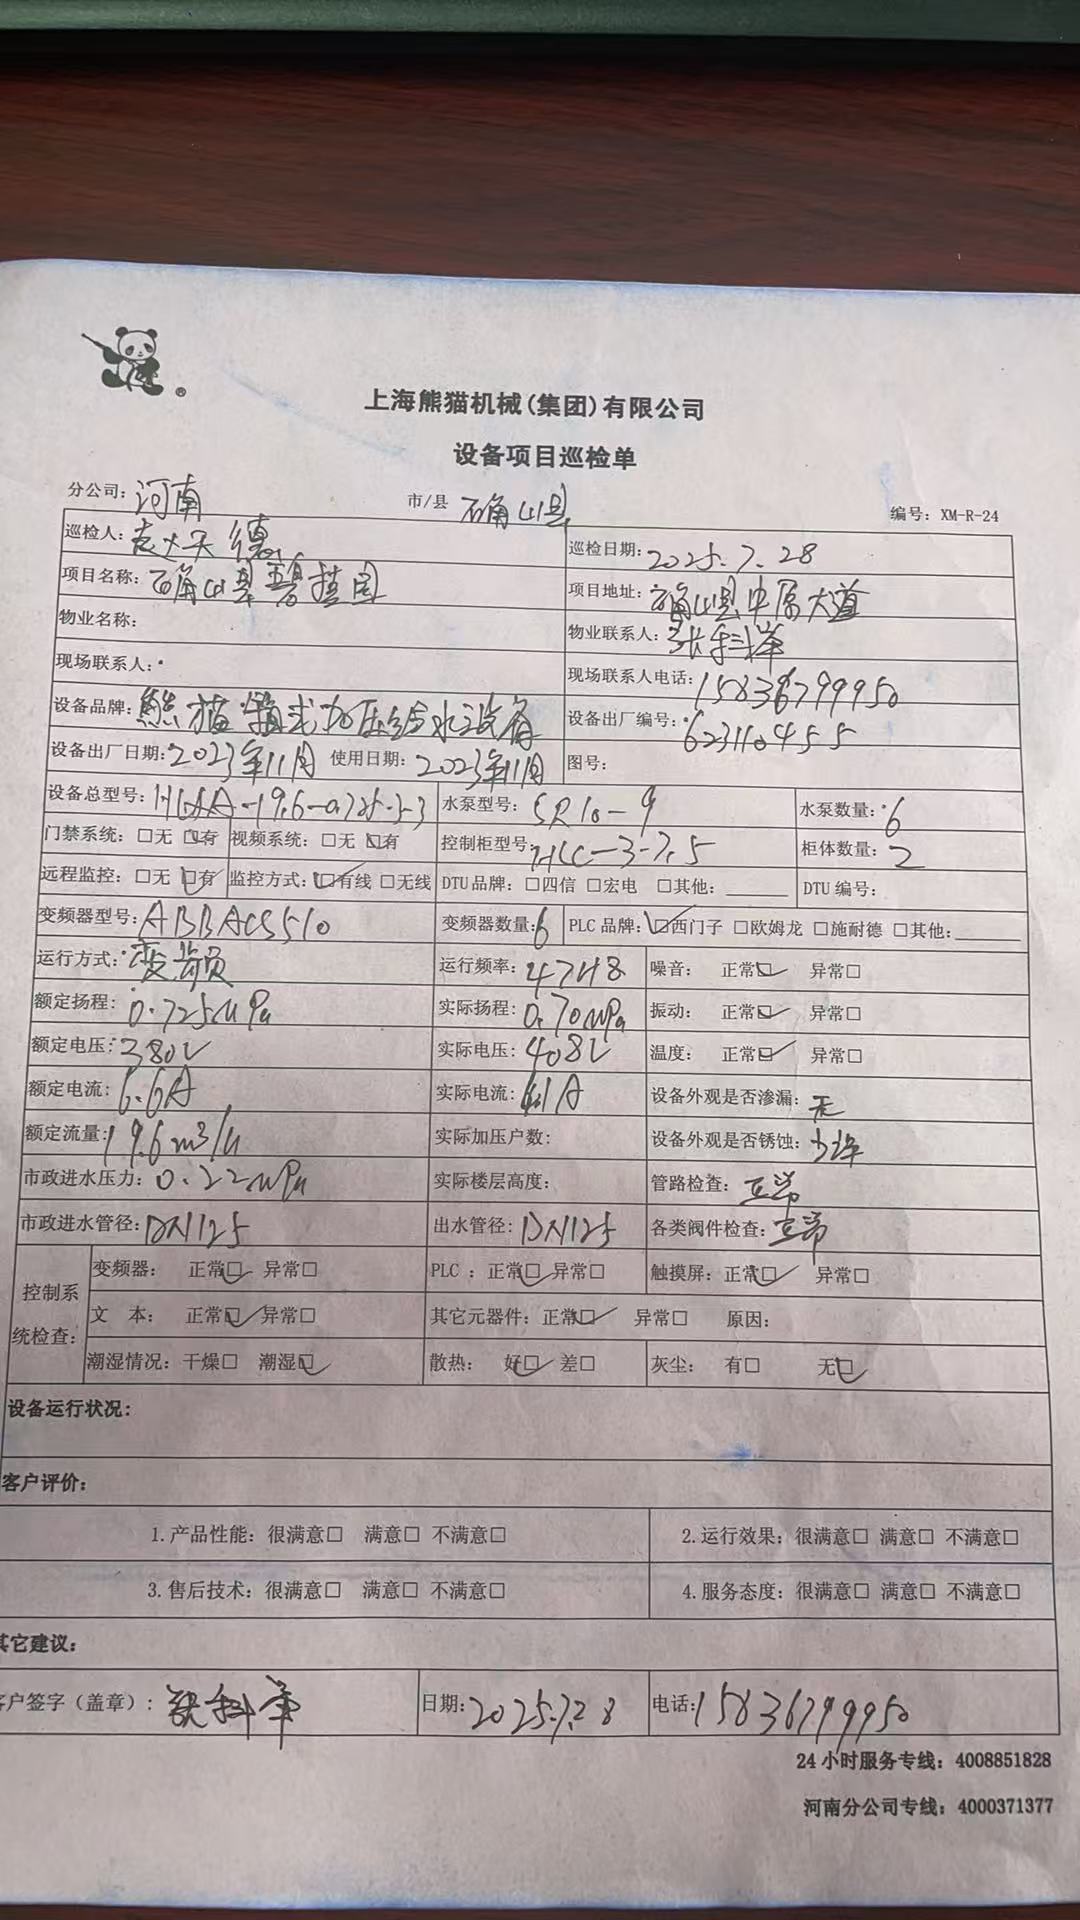 上海熊猫机械(集团)有限公司
设备项目巡检单
分公司: 河南 市/县 确山县 编号: XM-R-24
巡检人: 德 巡检日期: 2025.7.28
项目名称: 确山县碧桂园 项目地址: 确山县中原大道
物业名称: 物业联系人: 张科举
现场联系人: 现场联系人电话: 15836799950
设备品牌: 熊猫箱式加压给水设备 设备出厂编号: 623110455
设备出厂日期: 2023年11月 使用日期: 2023年11月 图号:
设备总型号: -19.6-0.725-3 水泵型号: SR10-9 水泵数量: 6
门禁系统: □无 ☑有 视频系统: □无 ☑有 控制柜型号: HLC-3-7.5 柜体数量: 2
远程监控: □无 ☑有 监控方式: ☑有线 □无线 DTU品牌: □四信 □宏电 □其他: DTU编号:
变频器型号: ABBACS510 变频器数量: 6 PLC品牌: ☑西门子 □欧姆龙 □施耐德 □其他:
运行方式: 变频 运行频率: 47HZ 噪音: 正常☑ 异常□
额定扬程: 0.725MPa 实际扬程: 0.70MPa 振动: 正常☑ 异常□
额定电压: 380V 实际电压: 408V 温度: 正常☑ 异常□
额定电流: 6.6A 实际电流: A 设备外观是否渗漏: 无
额定流量: 19.6m3/H 实际加压户数: 设备外观是否锈蚀:
市政进水压力: 0.22MPa 实际楼层高度: 管路检查: 正常
市政进水管径: DN125 出水管径: DN125 各类阀件检查: 正常
控制系统检查:
变频器: 正常☑ 异常□ PLC: 正常☑ 异常□ 触摸屏: 正常☑ 异常□
文 本: 正常☑ 异常□ 其它元器件: 正常☑ 异常□ 原因:
潮湿情况: 干燥□ 潮湿☑ 散热: 好☑ 差□ 灰尘: 有□ 无☑
设备运行状况:
客户评价:
1.产品性能: 很满意□ 满意□ 不满意□ 2.运行效果: 很满意□ 满意□ 不满意□
3.售后技术: 很满意□ 满意□ 不满意□ 4.服务态度: 很满意□ 满意□ 不满意□
其它建议:
客户签字(盖章): 张科举 日期: 2025.7.28 电话: 15836799950
24小时服务专线: 4008851828
河南分公司专线: 4000371377